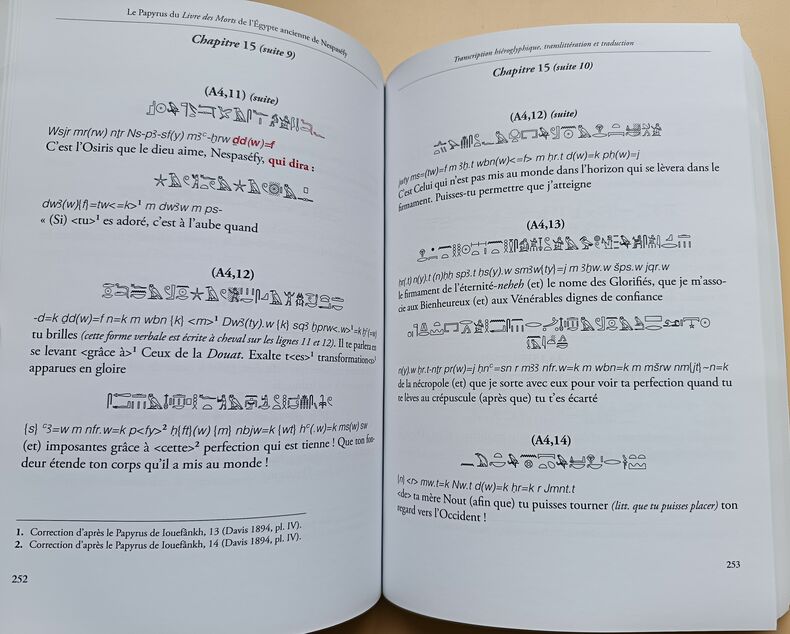 Le Papyrus du Livre des Morts de l'Égypte ancienne de Nespaséfy
Chapitre 15 (suite 9)
(A4,11) (suite)
Wsjr mr(rw) nṯr Ns-pꜣ-sf(y) mꜣꜥ-ḫrw ḏd(w)=f
C'est l'Osiris que le dieu aime, Nespaséfy, qui dira :
dwꜣ(w){f}=tw<=k>¹ m dwꜣw m ps-
« (Si) <tu>¹ es adoré, c'est à l'aube quand
(A4,12)
-d=k ḏd(w)=f n=k m wbn {k} <m>¹ Dwꜣ(ty).w {k} sqꜣ ḫprw<.w>¹=k
tu brilles (cette forme verbale est écrite à cheval sur les lignes 11 et 12). Il te parlera en
se levant <grâce à>¹ Ceux de la Douat. Exalte t<es>¹ transformation<s>¹
apparues en gloire
{s} ꜥꜣ=w m nfr.w=k p<fy>² ḫ{ft}(w) {m} nbjw=k {wt} hꜥ(.w)=k ms(w) sw
(et) imposantes grâce à <cette>² perfection qui est tienne ! Que ton fon-
deur étende ton corps qu'il a mis au monde !
1. Correction d'après le Papyrus de Iouefânkh, 13 (Davis 1894, pl. IV).
2. Correction d'après le Papyrus de Iouefânkh, 14 (Davis 1894, pl. IV).
252
Transcription hiéroglyphique, translittération et traduction
Chapitre 15 (suite 10)
(A4,12) (suite)
jwty ms=(tw)=f m ꜣḫ.t wbn(w)<=f> m ḥr.t d(w)=k pḥ(w)=j
C'est Celui qui n'est pas mis au monde dans l'horizon qui se lèvera dans le
firmament. Puisses-tu permettre que j'atteigne
(A4,13)
ḥr(.t) n(y).t (n)ḥḥ spꜣ.t ḥs(y).w smꜣw{ty}=j m ꜣḫw.w šps.w jqr.w
le firmament de l'éternité-neheh (et) le nome des Glorifiés, que je m'asso-
cie aux Bienheureux (et) aux Vénérables dignes de confiance
n(y).w ḥr.t-nṯr pr(w)=j ḥnꜥ=sn r mꜣꜣ nfr.w=k m wbn=k m mšrw nm{jt}~n=k
de la nécropole (et) que je sorte avec eux pour voir ta perfection quand tu
te lèves au crépuscule (après que) tu t'es écarté
(A4,14)
{n} <r> mw.t=k Nw.t d(w)=k ḥr=k r Jmnt.t
<de> ta mère Nout (afin que) tu puisses tourner (litt. que tu puisses placer) ton
regard vers l'Occident !
253